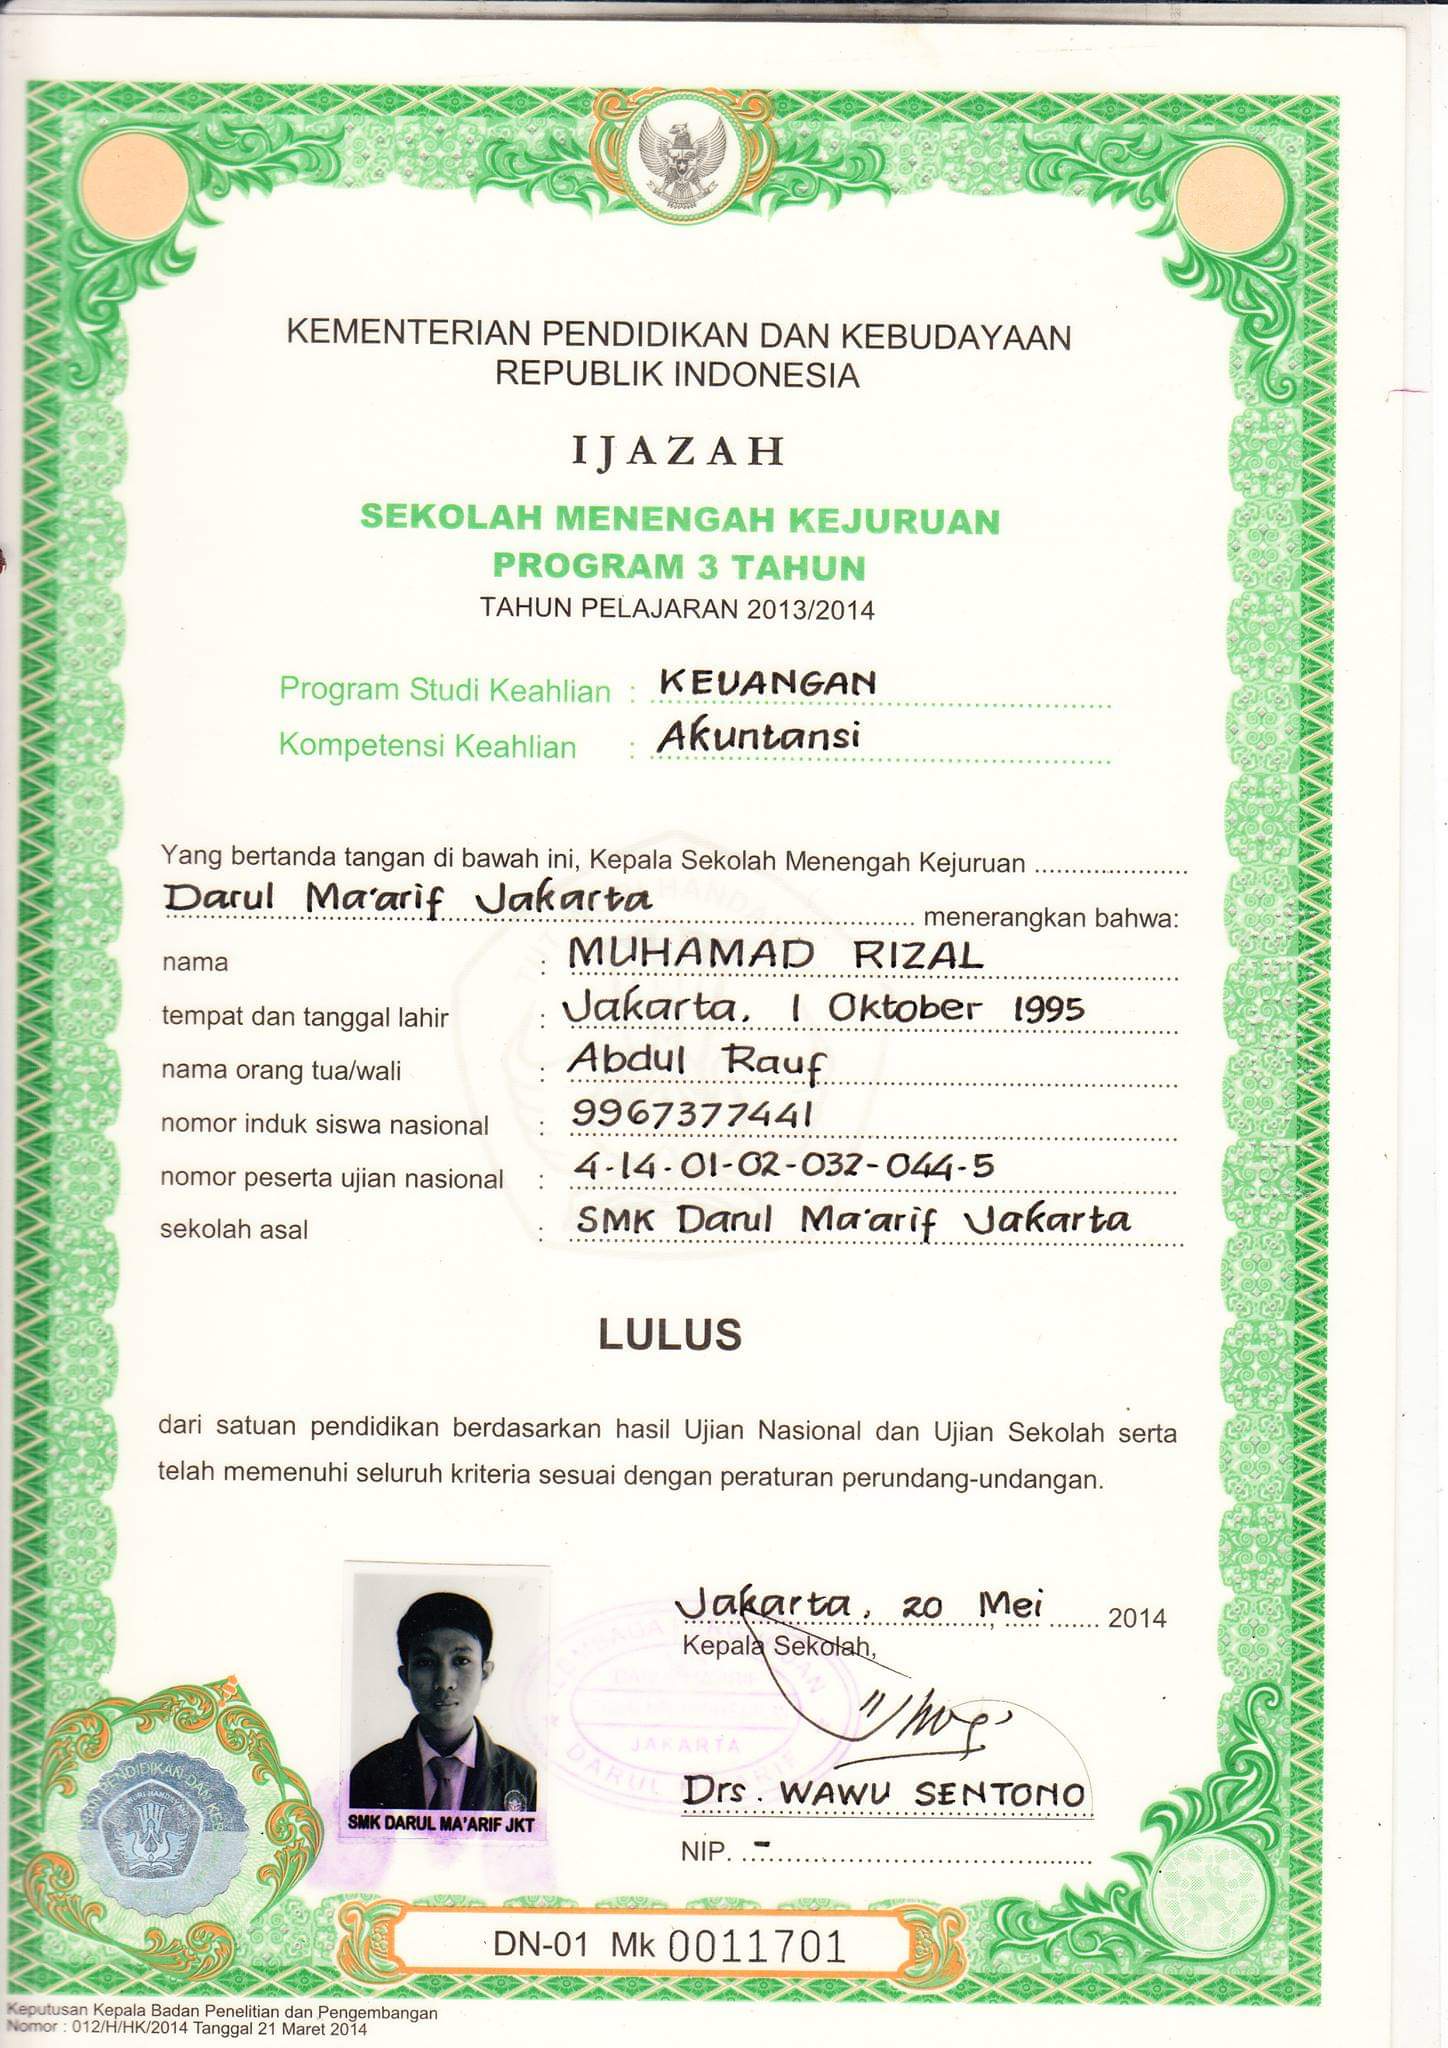 KEMENTERIAN PENDIDIKAN DAN KEBUDAYAAN
REPUBLIK INDONESIA
IJAZAH
SEKOLAH MENENGAH KEJURUAN
PROGRAM 3 TAHUN
TAHUN PELAJARAN 2013/2014
Program Studi Keahlian : KEUANGAN
Kompetensi Keahlian : Akuntansi
Yang bertanda tangan di bawah ini, Kepala Sekolah Menengah Kejuruan
Darul Ma'arif Jakarta menerangkan bahwa:
nama : MUHAMAD RIZAL
tempat dan tanggal lahir : Jakarta, 1 Oktober 1995
nama orang tua/wali : Abdul Rauf
nomor induk siswa nasional : 9967377441
nomor peserta ujian nasional : 4-14-01-02-032-044-5
sekolah asal : SMK Darul Ma'arif Jakarta
LULUS
dari satuan pendidikan berdasarkan hasil Ujian Nasional dan Ujian Sekolah serta
telah memenuhi seluruh kriteria sesuai dengan peraturan perundang-undangan.
Jakarta, 20 Mei 2014
Kepala Sekolah,
JAKARTA
Drs. WAWU SENTONO
NIP. -
SMK DARUL MA'ARIF JKT
DN-01 Mk 0011701
Keputusan Kepala Badan Penelitian dan Pengembangan
Nomor : 012/H/HK/2014 Tanggal 21 Maret 2014